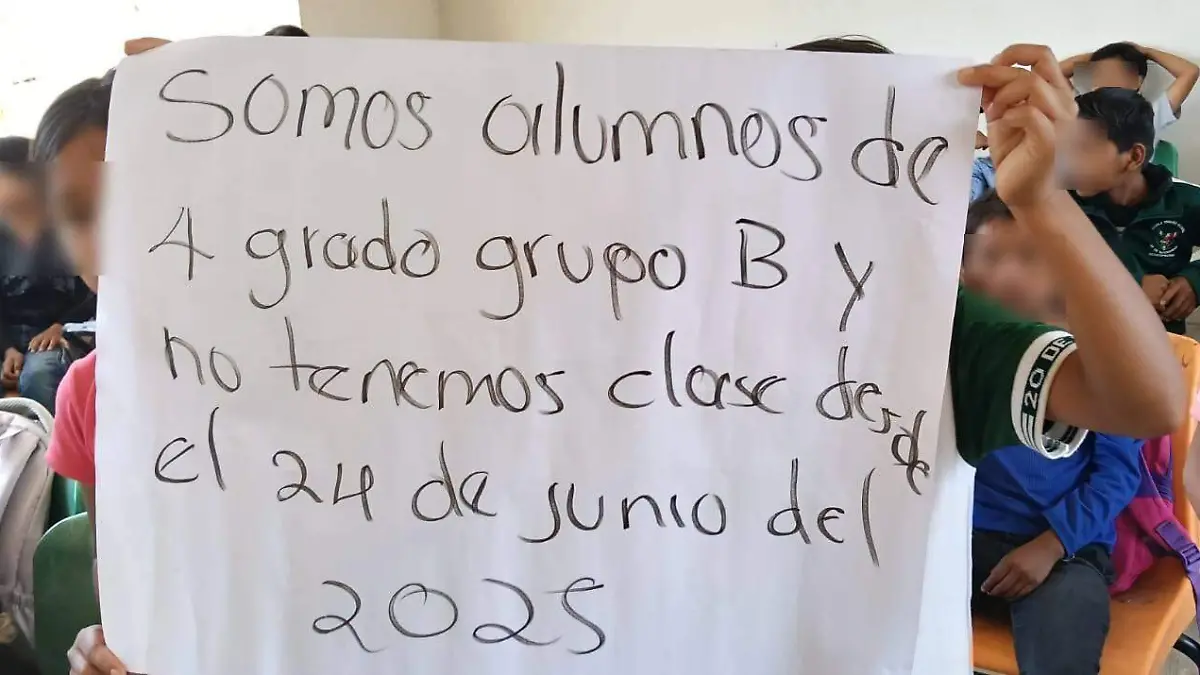 Somos alumnos de
4 grado grupo B y
no tenemos clase desde
el 24 de junio del
2025
20 DE